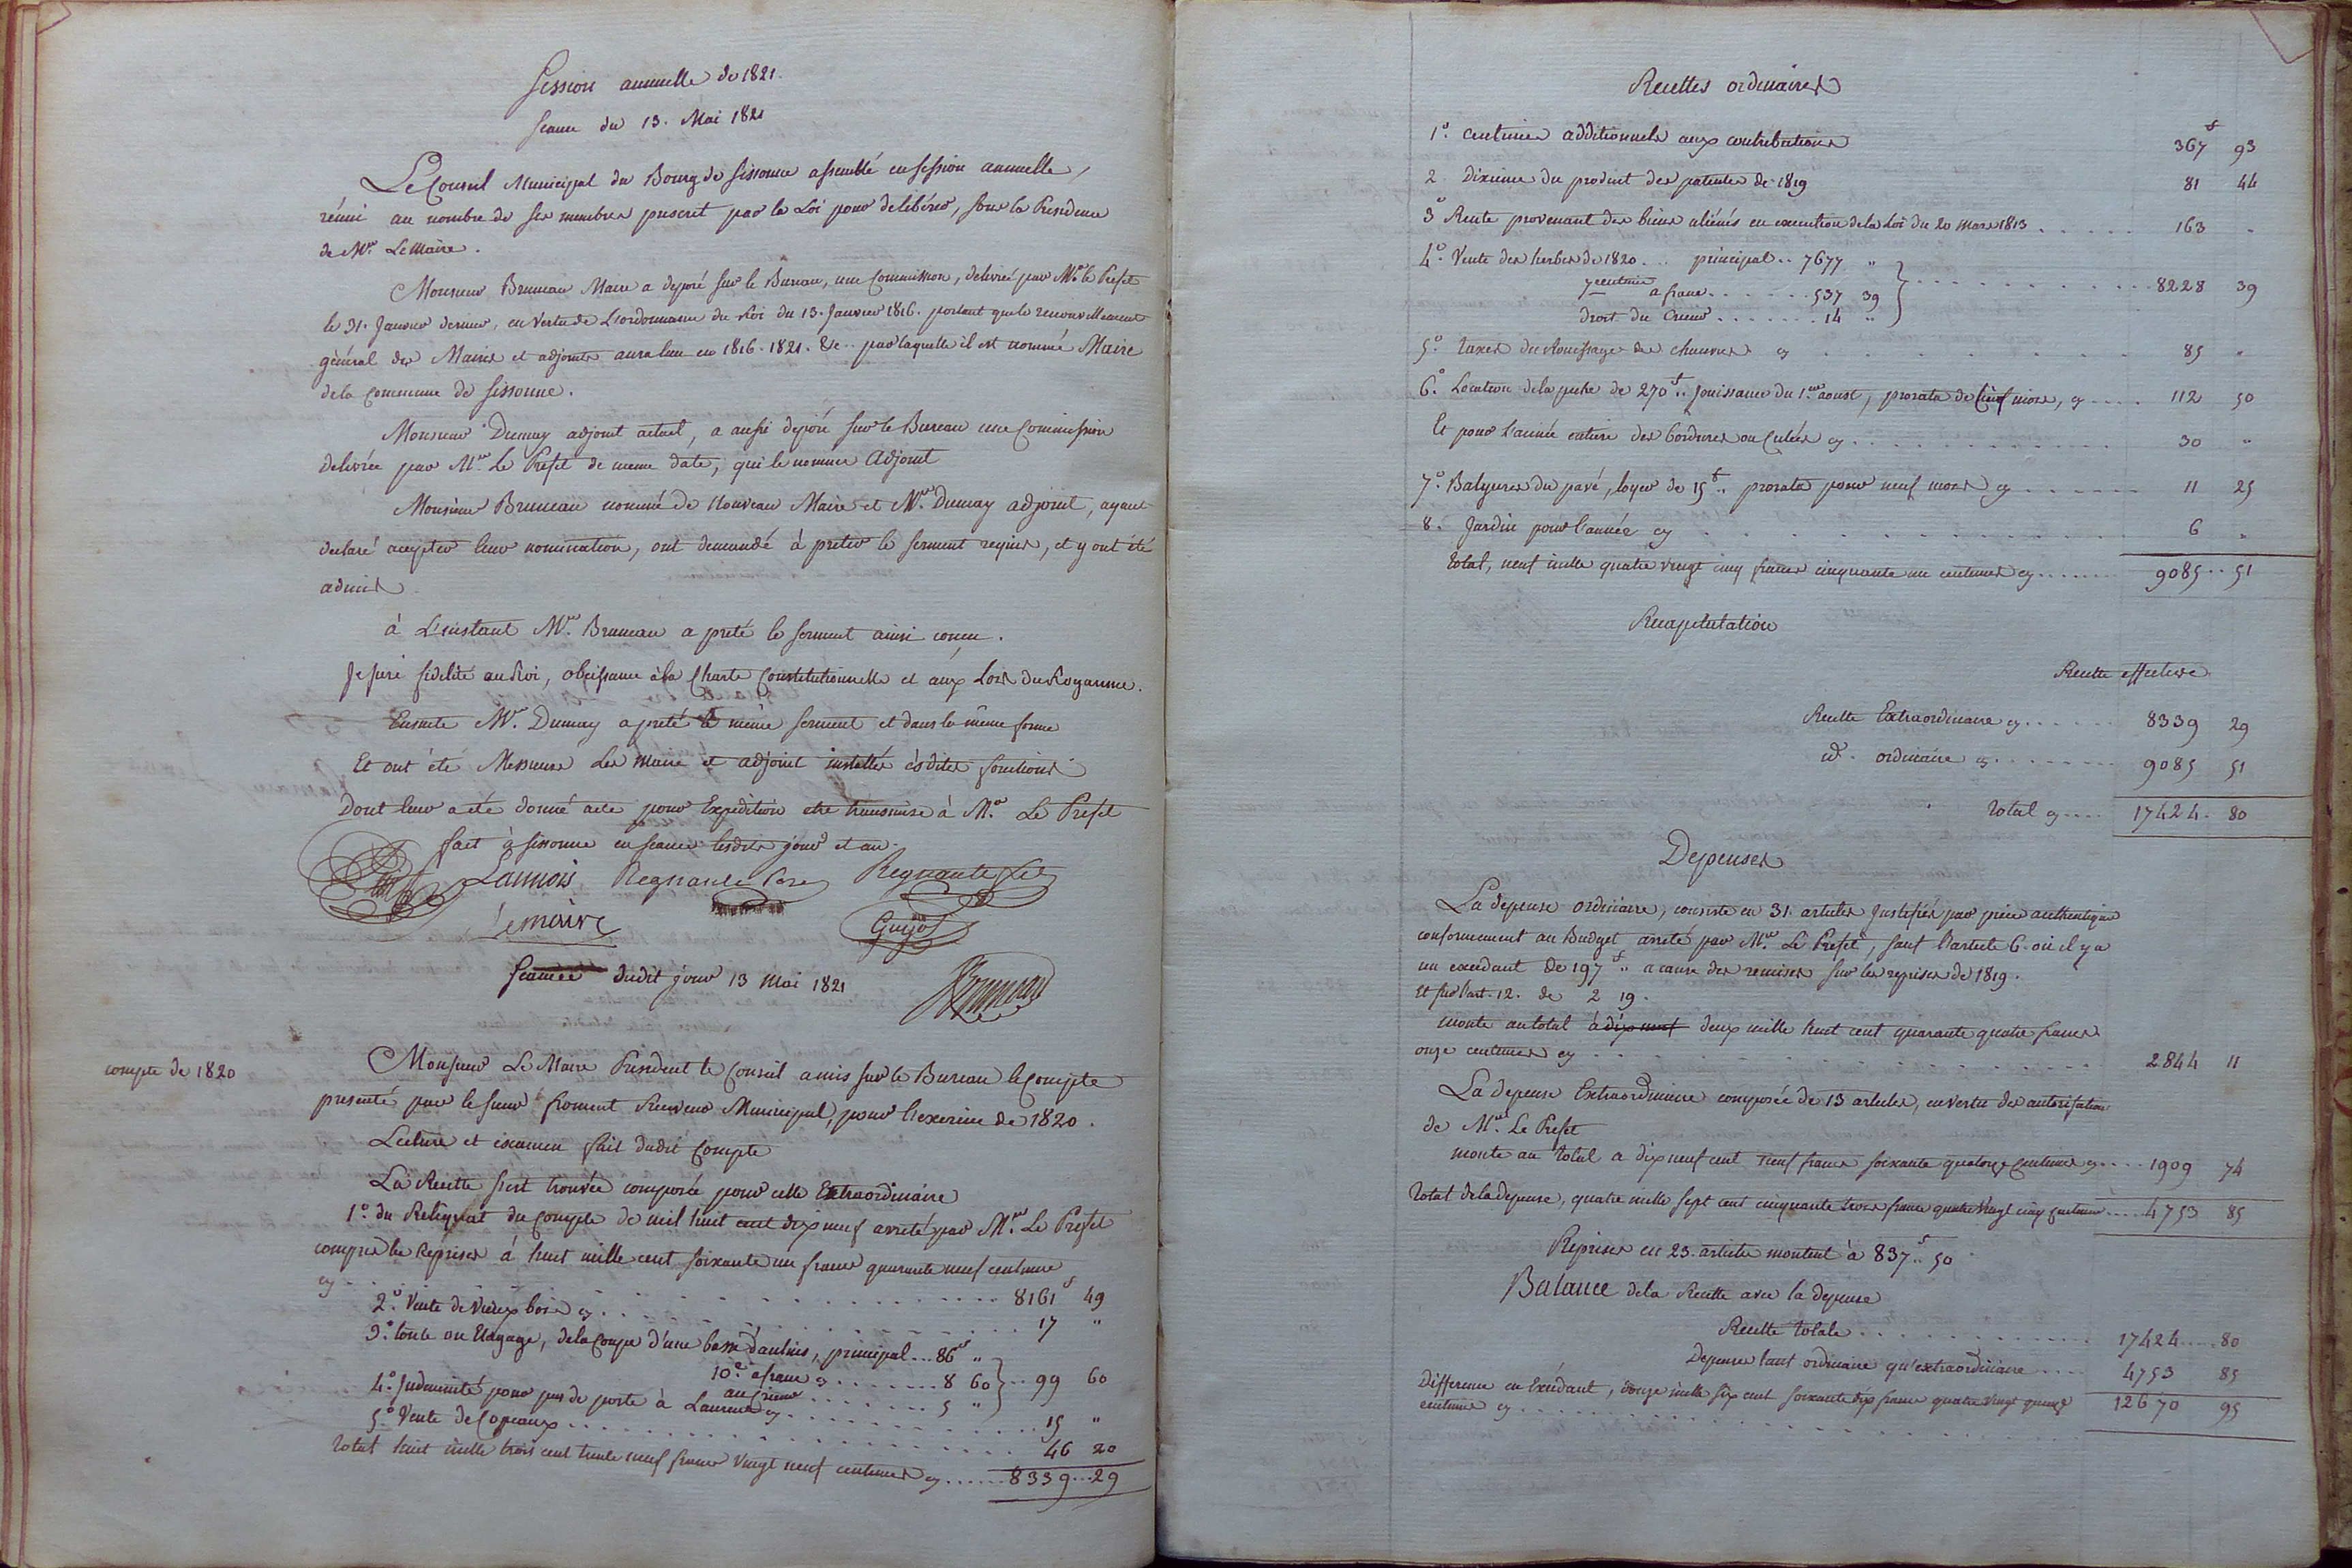 Session annuelle de 1821.
Seance du 13. Mai 1821
Le Conseil Municipal du Bourg de Sissonne assemblé en session annuelle,
réuni au nombre de ses membres prescrit par la Loi pour délibérer, sous la Presidence
de Mr. Le Maire.
Monsieur Bruneau Maire a déposé sur le Bureau, une Commission, delivrée par Mr. le Prefet
le 31. Janvier dernier, en vertu de L'ordonnance du Roi du 13. Janvier 1816. portant que le renouvellement
général des Maires et adjoints aura lieu en 1816. 1821. &c.. par laquelle il est nommé Maire
de la Commune de Sissonne.
Monsieur Dumay adjoint actuel, a aussi déposé sur le Bureau une Commission
delivrée par Mr. Le Prefet de meme date, qui le nomme Adjoint
Monsieur Bruneau nommé de Nouveau Maire et Mr. Dumay adjoint, ayant
declaré accepter leur nomination, ont demandé à preter le serment requis, et y ont été
admis
à L'instant Mr. Bruneau a preté le serment ainsi concu.
Je jure fidélité au Roi, obeissance à la Charte Constitutionnelle et aux Lois du Royaume.
Ensuite Mr. Dumay a preté le même serment et dans la même forme
Et ont été Messieurs Les Maire et adjoint installés èsdites fonctions
Dont leur a été donné acte pour Expédition etre transmise à Mr. Le Prefet
fait à Sissonne en seance lesdits jour et an.
Lannois Regnault Pere Regnault fils
Lemaire Guyot
Seance dudit jour 13 Mai 1821
Bruneau
compte de 1820
Monsieur Le Maire President le Conseil a mis sur le Bureau le Compte
presenté par le sieur froment Receveur Municipal, pour l'exercice de 1820.
Lecture et examen fait dudit Compte
La Recette s'est trouvée composée pour celle Extraordinaire
1o. du Reliquat du Compte de mil huit cent dix neuf arreté par Mr. Le Prefet
compris les Reprises à huit mille cent soixante un francs quarante neuf centimes
cy . . . 8161f 49
2o. Vente de vieux bois cy . . . 17 "
3o. tonte ou Elagage, de la Coupe d'une basse d'aulnes, principal ... 86f "
10e. a franc . . . 8 60 } .. 99 60
au crieur . . . 5 "
4o. Indemnité pour pas de porte à Laurent cy . . . 15 "
5o. Vente de Copeaux . . . 46 20
Total huit mille trois cent trente neuf francs Vingt neuf centimes cy . . . 8339...29
Recettes ordinaires
1o. Centimes additionnels aux contributions 367f 93
2. Dixieme du produit des patentes de 1819 81 44
3o Rente provenant des biens aliénés en execution de la Loi du 20 Mars 1813 . . . . . 163 "
4o. Vente des herbes de 1820... principal .. 7677 "
7 centimes a franc . . . 537 39 } . . . 8228 39
droit du Crieur . . . 14 "
5o. taxes du Rouissage des chanvres cy . . . 85 "
6o. Location de la peche de 270f.. Jouissance du 1er aoust, prorata de Cinq mois, cy . . . . 112 50
Et pour l'année entiere des bordures ou culées cy . . . 30 "
7o. Balyures du pavé, loyer de 15f.. prorata pour neuf mois cy . . . 11 25
8. Jardin pour l'année cy . . . 6 "
total, neuf mille quatre vingt cinq francs cinquante un centimes cy . . . 9085 .. 51
Recapitulation
Recette effective
Recette Extraordinaire cy . . . 8339 29
id. ordinaire cy . . . 9085 51
Total cy .... 17424. 80
Depenses
La depense ordinaire, consiste en 31. articles Justifiés par piece authentique
conformement au Budget arreté par Mr. Le Prefet, sauf l'article 6. où il y a
un excedant de 197f.. a cause des remises sur les reprises de 1819.
Et sur l'art. 12. de 2 19.
monte au total à dix neuf deux mille huit cent quarante quatre francs
onze centimes cy . . . 2844 11
La depense Extraordinaire composée de 13 articles, en vertu des autorisations
de Mr. Le Prefet
monte au total a dix neuf cent neuf francs soixante quatorze centimes cy .... 1909 74
Total de la depense, quatre mille sept cent cinquante trois francs quatre Vingt cinq centimes .... 4753 85
Reprises en 23. articles montent à 837f.. 50
Balance de la Recette avec la depense
Recette totale . . . 17424 .... 80
Depense tant ordinaire qu'extraordinaire .... 4753 85
Difference en Excédant, douze mille six cent soixante dix francs quatre Vingt quinze
centimes cy . . . 12670 95